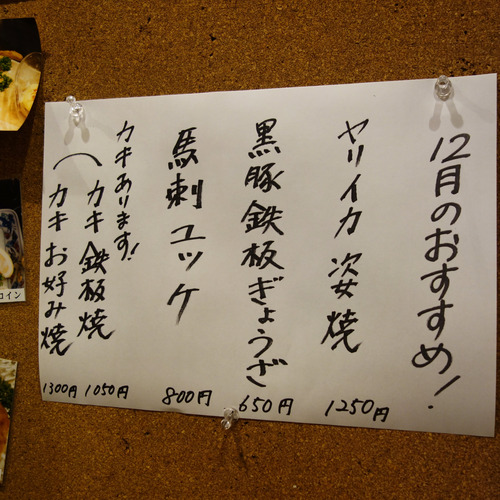 12月のおすすめ!
ヤリイカ姿焼 1250円
黒豚鉄板ぎょうざ 650円
馬刺ユッケ 800円
カキあります!
カキ鉄板焼 1050円
カキお好み焼 1300円
コイン